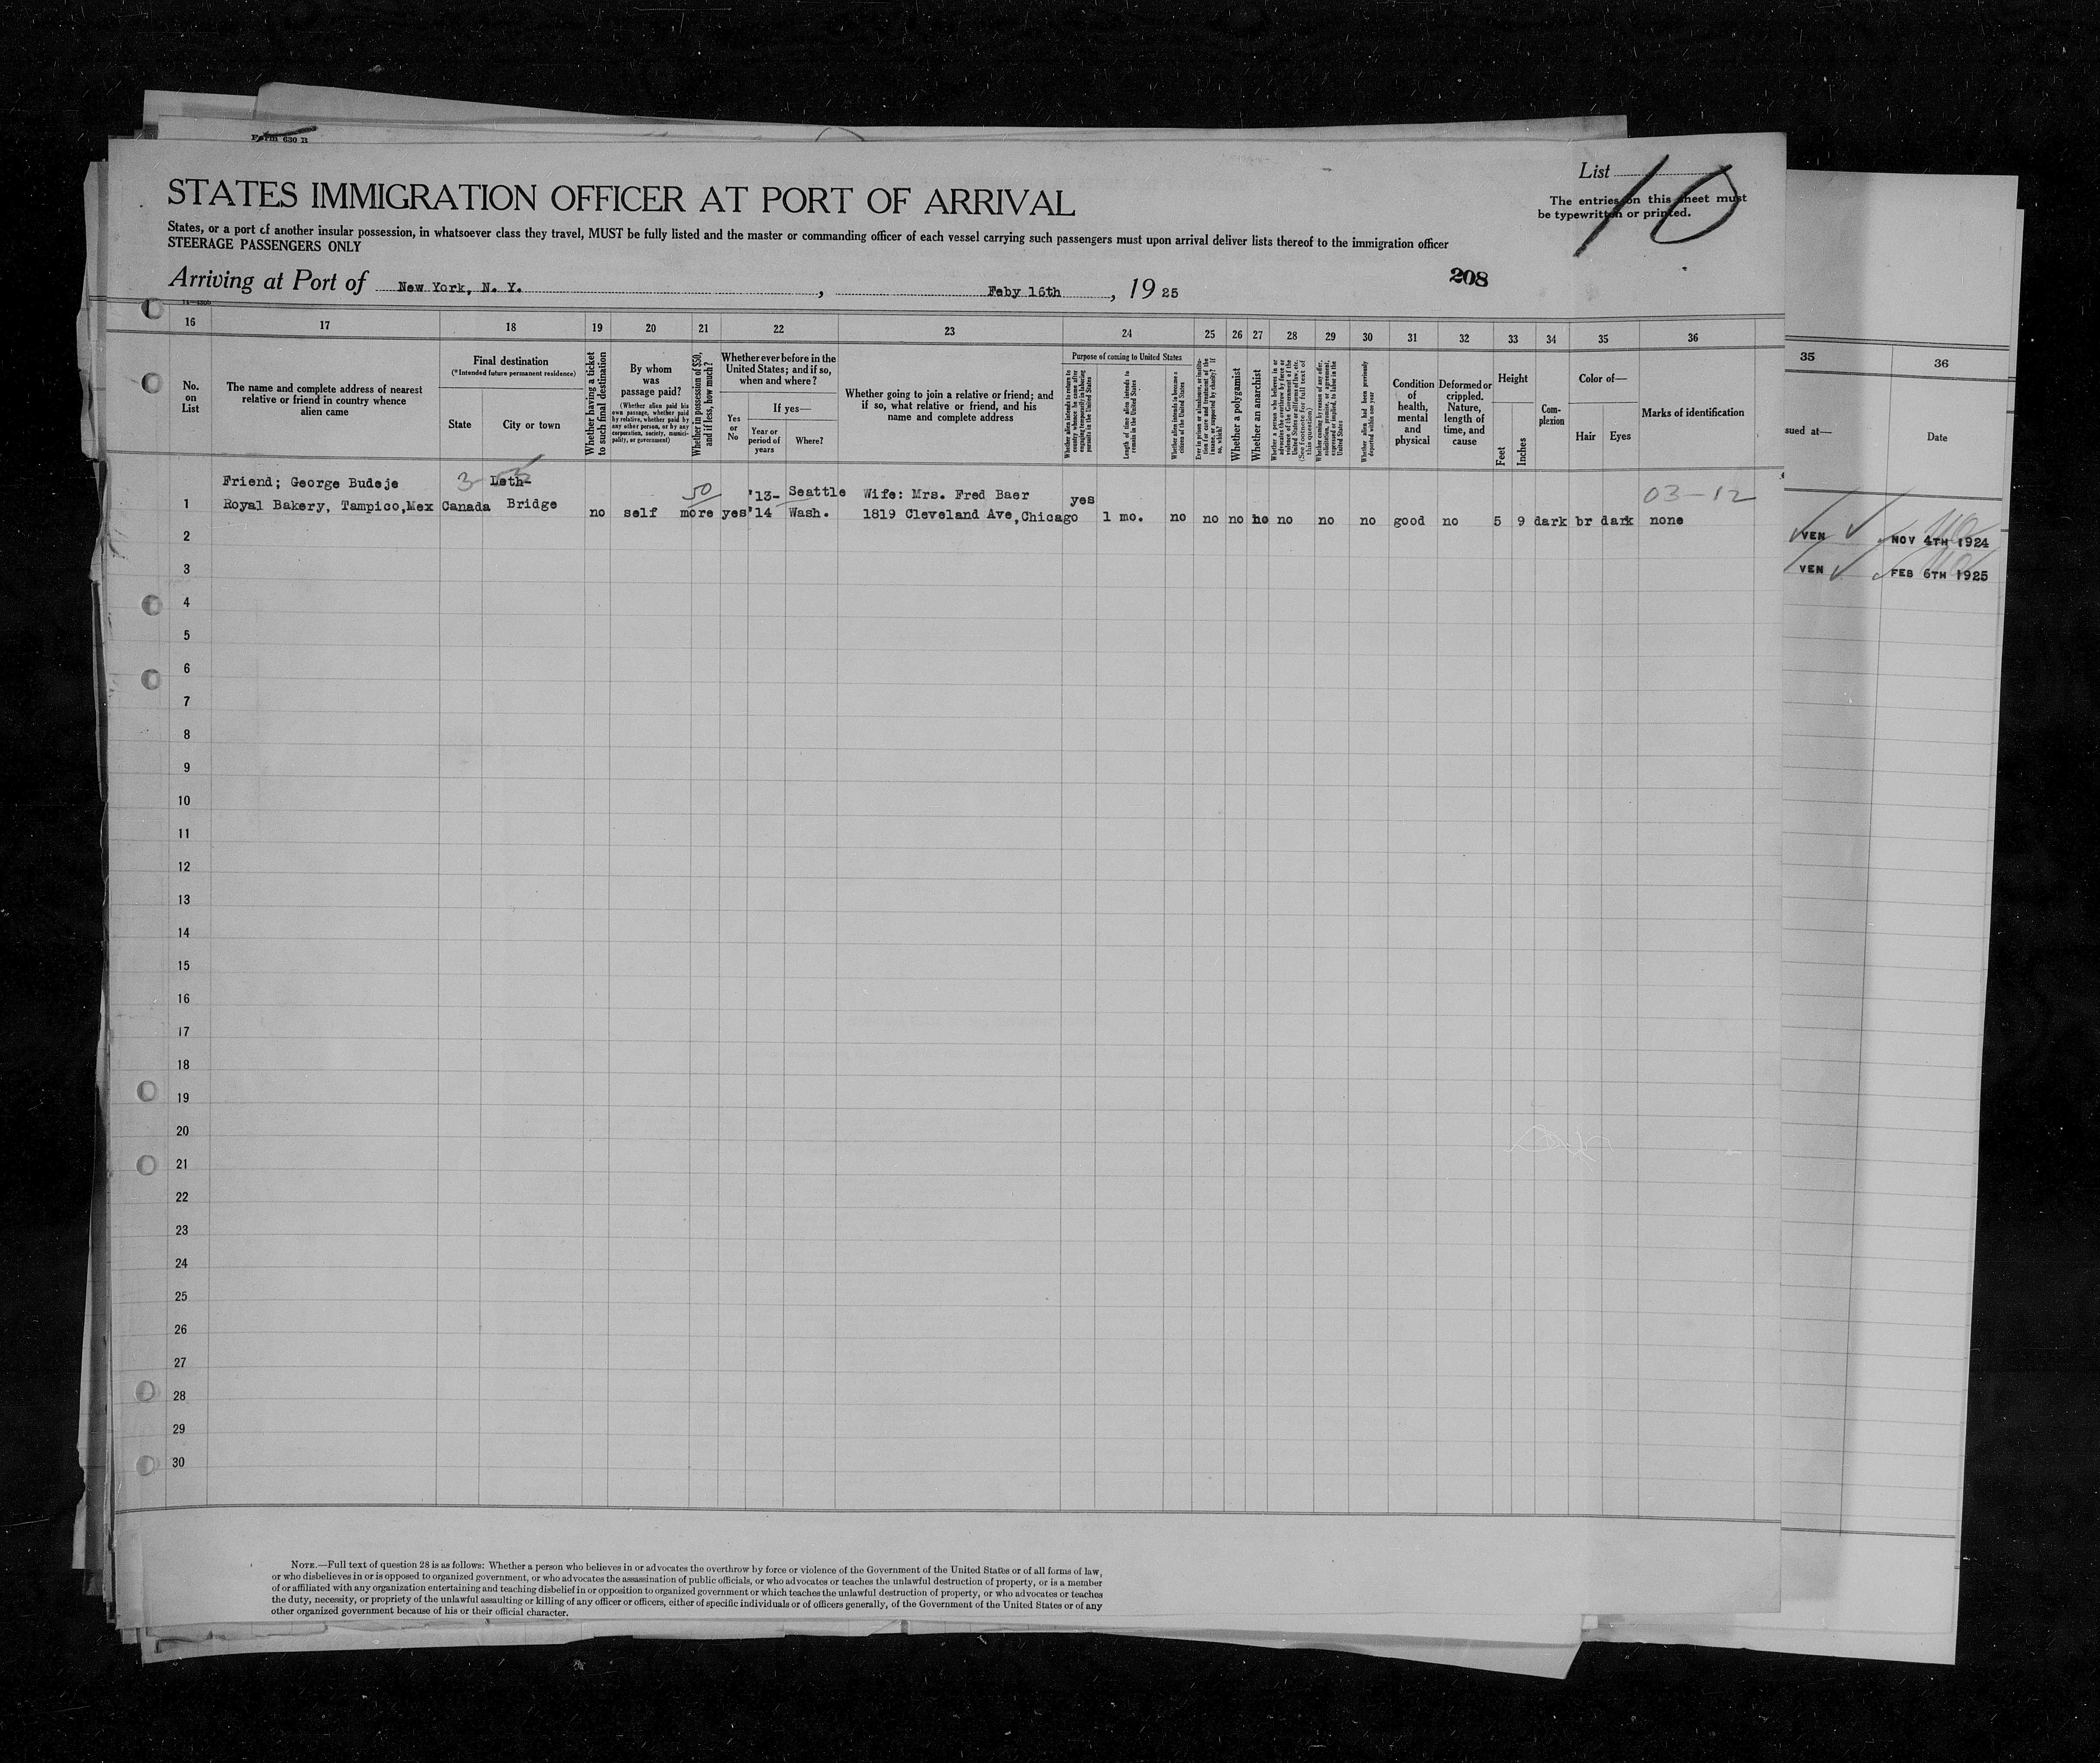 Form 630 B
List 10
STATES IMMIGRATION OFFICER AT PORT OF ARRIVAL
The entries on this sheet must
be typewritten or printed.
States, or a port of another insular possession, in whatsoever class they travel, MUST be fully listed and the master or commanding officer of each vessel carrying such passengers must upon arrival deliver lists thereof to the immigration officer
STEERAGE PASSENGERS ONLY
208
Arriving at Port of New York, N. Y. , Feby 16th , 1925
16 17 18 19 20 21 22 23 24 25 26 27 28 29 30 31 32 33 34 35 36
No.
on
List
The name and complete address of nearest
relative or friend in country whence
alien came
Final destination
(*Intended future permanent residence)
State
City or town
Whether having a ticket
to such final destination
By whom
was
passage paid?
(Whether alien paid his
own passage, whether paid
by relative, whether paid by
any other person, or by any
corporation, society, munici-
pality, or government)
Whether in possession of $50,
and if less, how much?
Whether ever before in the
United States; and if so,
when and where?
Yes
or
No
If yes—
Year or
period of
years
Where?
Whether going to join a relative or friend; and
if so, what relative or friend, and his
name and complete address
Purpose of coming to United States
Whether alien intends to return to
country whence he came after
engaging temporarily in laboring
pursuits in the United States
Length of time alien intends to
remain in the United States
Whether alien intends to become a
citizen of the United States
Ever in prison or almshouse, or institu-
tion for care and treatment of the
insane, or supported by charity? If
so, which?
Whether a polygamist
Whether an anarchist
Whether a person who believes in or
advocates the overthrow by force or
violence of the Government of the
United States or all forms of law, etc.
(See footnote for full text of
this question)
Whether coming by reason of any offer,
solicitation, promise, or agreement,
expressed or implied, to labor in the
United States
Whether alien had been previously
deported within one year
Condition
of
health,
mental
and
physical
Deformed or
crippled.
Nature,
length of
time, and
cause
Height
Feet
Inches
Com-
plexion
Color of—
Hair
Eyes
Marks of identification
35 36
sued at—
Date
Friend; George Budeje 3- Leth- 50 '13- Seattle Wife: Mrs. Fred Baer yes 03-12
1 Royal Bakery, Tampico,Mex Canada Bridge no self more yes '14 Wash. 1819 Cleveland Ave,Chicago 1 mo. no no no no no no no good no 5 9 dark br dark none
2 VEN NOV 4TH 1924
3 VEN FEB 6TH 1925
4
5
6
7
8
9
10
11
12
13
14
15
16
17
18
19
20
21
22
23
24
25
26
27
28
29
30
NOTE.—Full text of question 28 is as follows: Whether a person who believes in or advocates the overthrow by force or violence of the Government of the United States or of all forms of law,
or who disbelieves in or is opposed to organized government, or who advocates the assassination of public officials, or who advocates or teaches the unlawful destruction of property, or is a member
of or affiliated with any organization entertaining and teaching disbelief in or opposition to organized government or which teaches the unlawful destruction of property, or who advocates or teaches
the duty, necessity, or propriety of the unlawful assaulting or killing of any officer or officers, either of specific individuals or of officers generally, of the Government of the United States or of any
other organized government because of his or their official character.